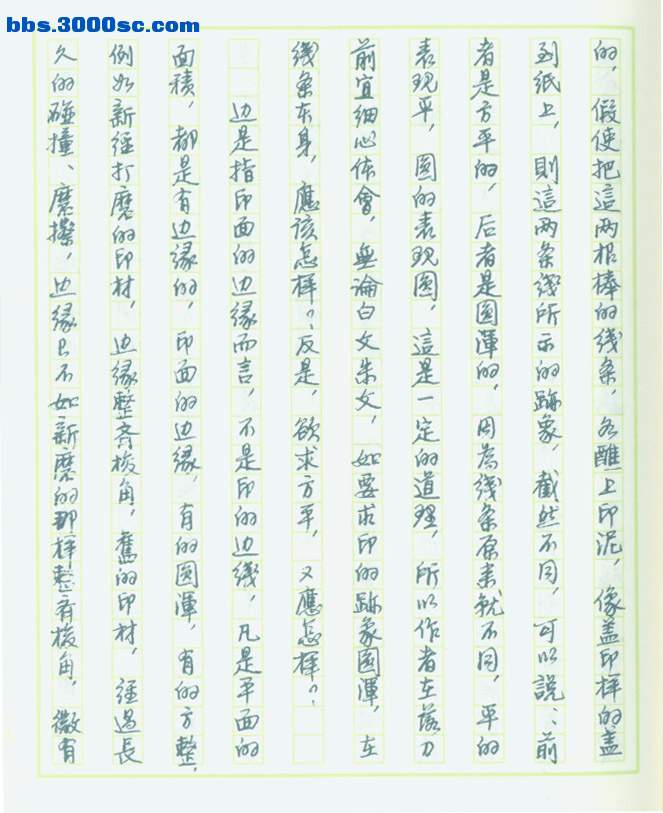 bbs.3000sc.com
的，假使把這两根棒的线条，各醮上印泥，像盖印样的盖
到纸上，則這两条线所示的跡象，截然不同，可以説：前
者是方平的，后者是圆渾的，因為线条原来就不同，平的
表現平，圆的表現圆，這是一定的道理，所以作者在落刀
前宜细心体會，無論白文朱文，如要求印的跡象圆渾，在
线条本身，應该怎样？反是，欲求方平，又應怎样？
边是指印面的边缘而言，不是印的边线，凡是平面的
面積，都是有边缘的，印面的边缘，有的圆渾，有的方整，
例如新經打磨的印材，边缘整齐棱角，舊的印材，經過長
久的碰撞、磨擦，边缘已不如新磨的那样整齐棱角，微有